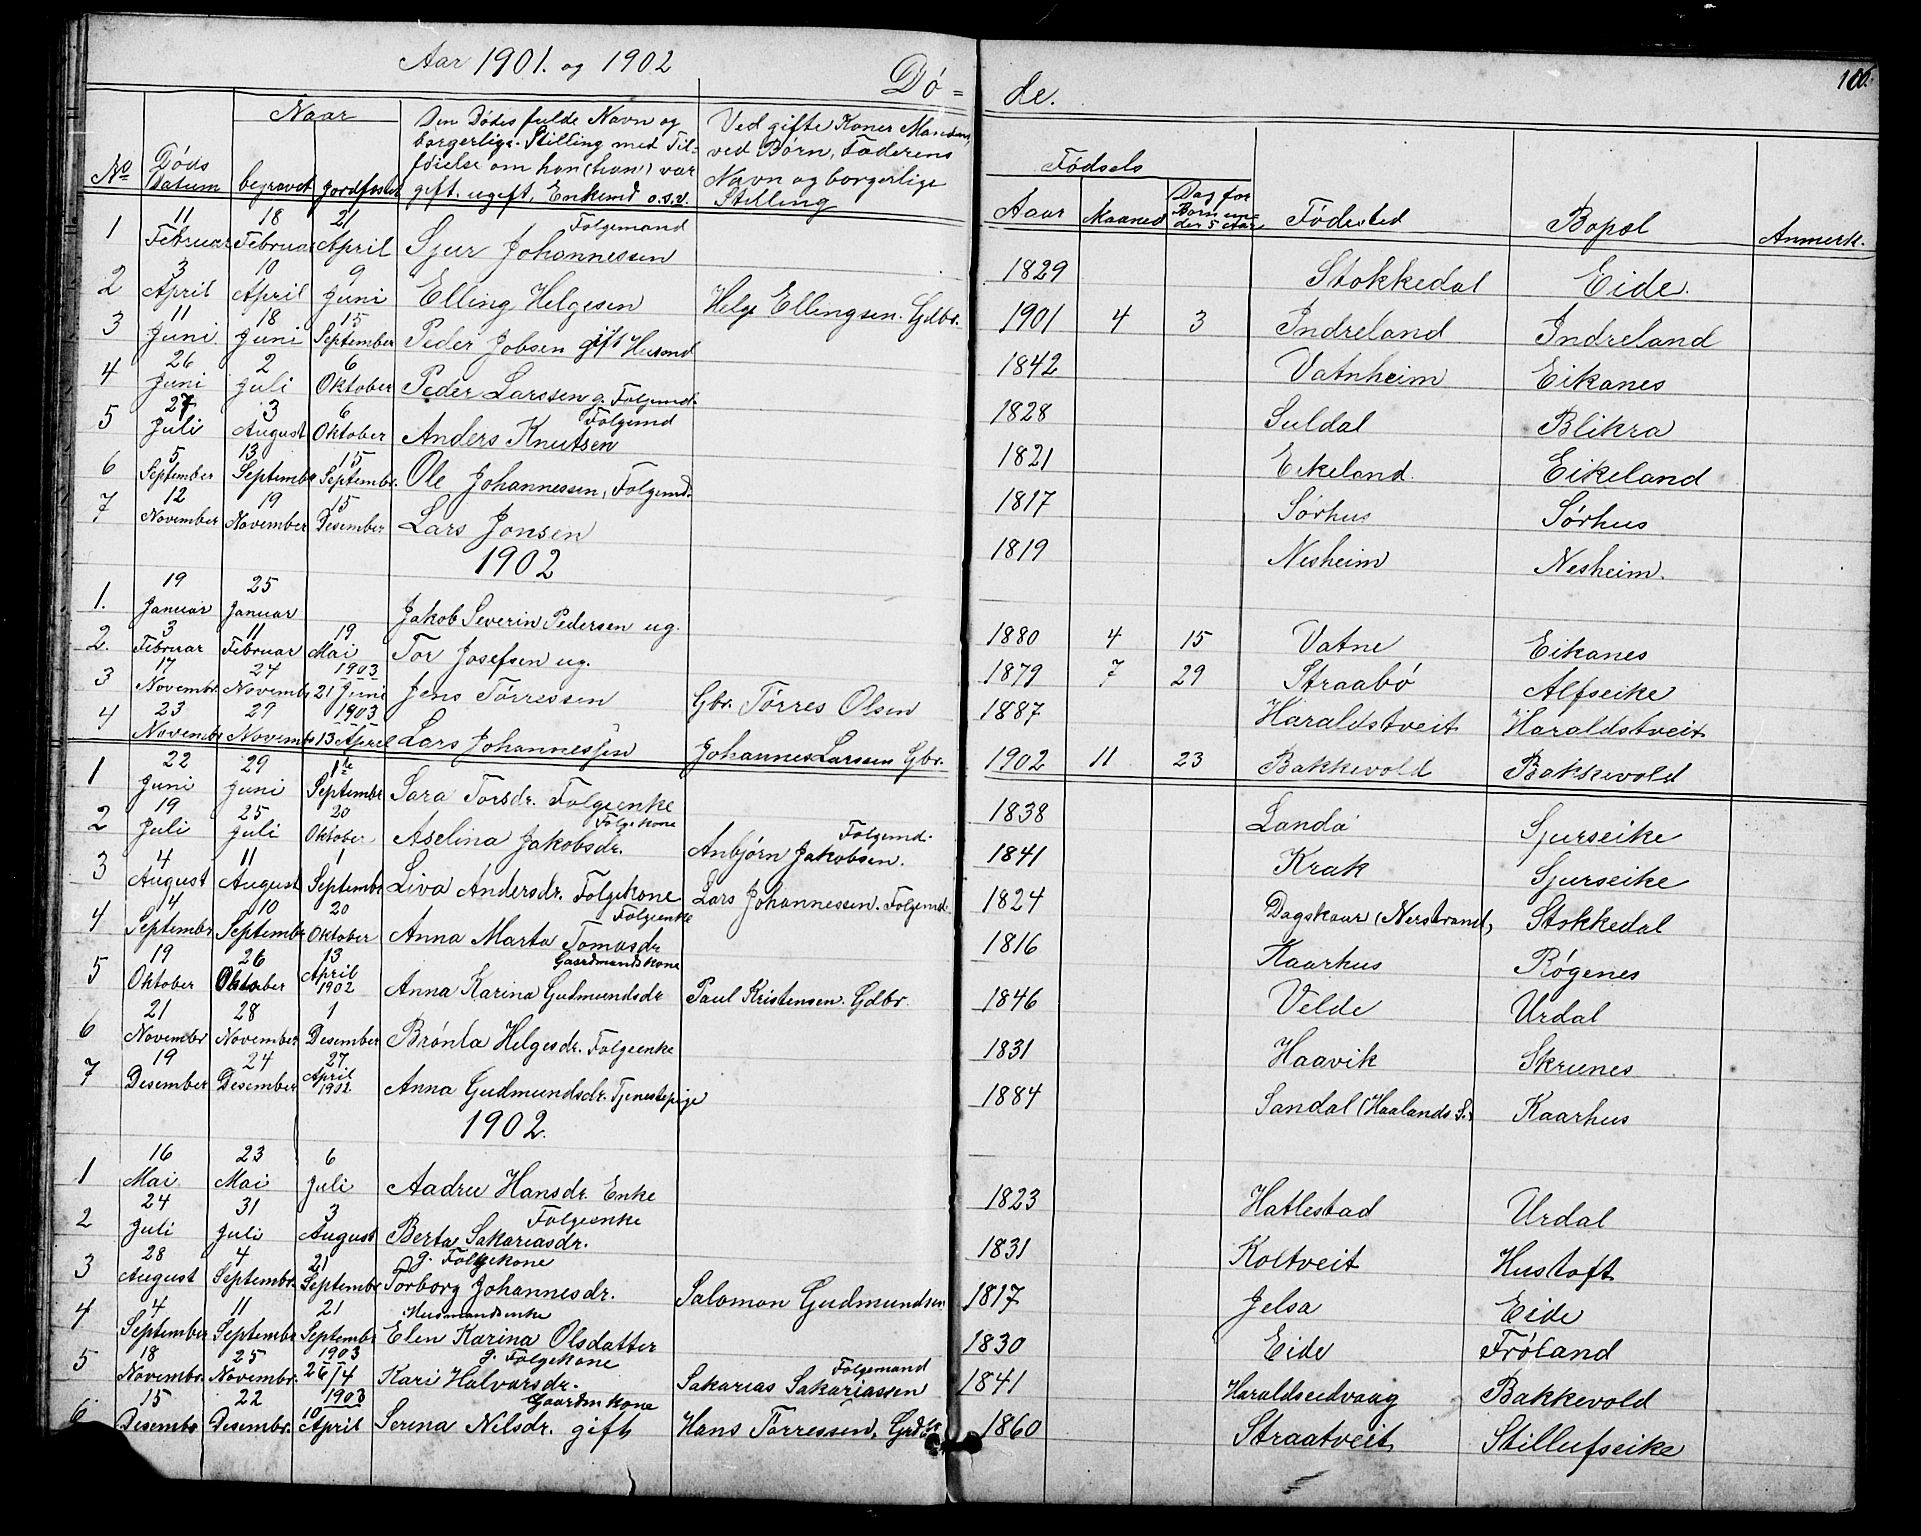 Aar 1901. og 1902
Dø= de.
106.
No
Døds Datum
Naar
begravet
jordfæstet
Den Dødes fulde Navn og
borgerlige Stilling med Til-
føielse om hun (han) var
gift, ugift, Enkemd o.s.v.
Ved gifte Koner Mandens,
ved Børn, Faderens
Navn og borgerlige
Stilling
Fødsels
Aar Maaned Dag for Børn un- der 5 Aar
Fødested
Bopæl
Anmerk.
1 11 Februar 18 Februar 21 April Sjur Johannessen Følgemand 1829 Stokkedal Eide.
2 3 April 10 April 9 Juni Elling Helgesen Helge Ellingsen. Gdbr. 1901 4 3 Indreland Indreland
3 11 Juni 18 Juni 15 September Peder Jobsen gift Husmd 1842 Vatnheim Eikanes
4 26 Juni 2 Juli 6 Oktober Peder Larssen g. Følgemd. 1828 Suldal Blikra
5 27 Juli 3 August 6 Oktober Anders Knutsen Følgemd 1821 Eikeland. Eikeland
6 5 September 13 Septembr 15 Septembr. Ole Johannessen, Følgemd. 1817 Sørhus Sørhus
7 12 November 19 November 15 Desember Lars Jonsen 1819 Nesheim Nesheim.
1902
1. 19 Januar 25 Januar Jakob Severin Pedersen ug. 1880 4 15 Vatne Eikanes
2. 3 Februar 11 Februar 19 Mai Tor Josefsen ug. 1879 7 29 Straabø Alfseike
3 17 Novembr. 24 Novembr 1903 21 Juni Jens Tørressen Gbr. Tørres Olsen 1887 Haraldstveit Haraldstveit
4 23 Novembr 29 Novembr 1903 13 April Lars Johannessen Johannes Larssen Gbr. 1902 11 23 Bakkevold Bakkevold
1 22 Juni 29 Juni 1te Septembr Sara Torsdr. Følgeenke 1838 Landa Sjurseike
2 19 Juli 25 Juli 20 Oktober Aselina Jakobsdr. Følgekone Anbjørn Jakobsen. Følgemd. 1841 Krak Sjurseike
3 4 August 11 August 1 Septembr Liva Andersdr. Følgekone Lars Johannessen. Følgemd. 1824 Dagskaar (Nerstrand) Stokkedal
4 4 Septembr 10 Septembr 20 Oktober Anna Marta Tomasdr Følgeenke 1816 Kaarhus Røgenes
5 19 Oktober 26 Oktober 13 April 1902 Anna Karina Gudmundsdr Gaardmandskone Paul Kristensen. Gdbr. 1846 Velde Urdal
6 21 Novembr 28 November 1 Desember Brønla Helgesdr. Følgeenke 1831 Haavik Skrunes
7 19 Desember 24 Desember 27 April 1902 Anna Gudmundsdr. Tjenestepige 1884 Sandal (Haalands S.) Kaarhus
1902.
1 16 Mai 23 Mai 6 Juli Aadru Hansdr. Enke 1823 Hatlestad Urdal
2 24 Juli 31 Juli 3 August Berta Sakariasdr. Følgeenke 1831 Koltveit Hustoft
3 28 August 4 Septembr. 21 Septembr Torborg Johannesdr. g. Følgekone Salomon Gudmundsen 1817 Jelsa Eide
4 4 September 11 Septembr 21 Septembr Elen Karina Olsdatter Husmandsenke 1830 Eide Frøland
5 18 Novembr. 25 Novembr. 1903 26/4 Kari Halvarsdr. g. Følgekone Sakarias Sakariassen Følgemand 1841 Haraldseidvaag Bakkevold
6 15 Desembr 22 Desembr. 1903 10 April Serina Nilsdr. gift Gaardmkone Hans Tørressen, Grdbr 1860 Straatveit Stillufseike